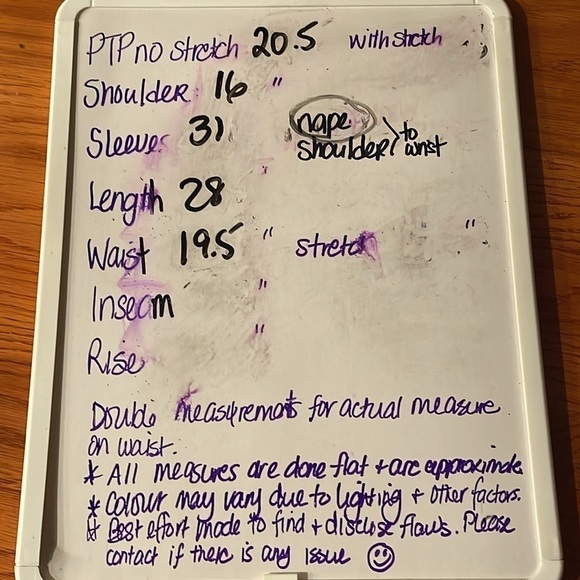 PTP no stretch 20.5 with stretch "
Shoulder 16 "
Sleeve 31 nape
shoulder > to wrist
Length 28 "
Waist 19.5 " stretch "
Inseam "
Rise "
Double measurements for actual measure
on waist.
* All measures are done flat + are approximate
* Colour may vary due to lighting + other factors.
* Best effort made to find + disclose flaws. Please
contact if there is any issue ☺